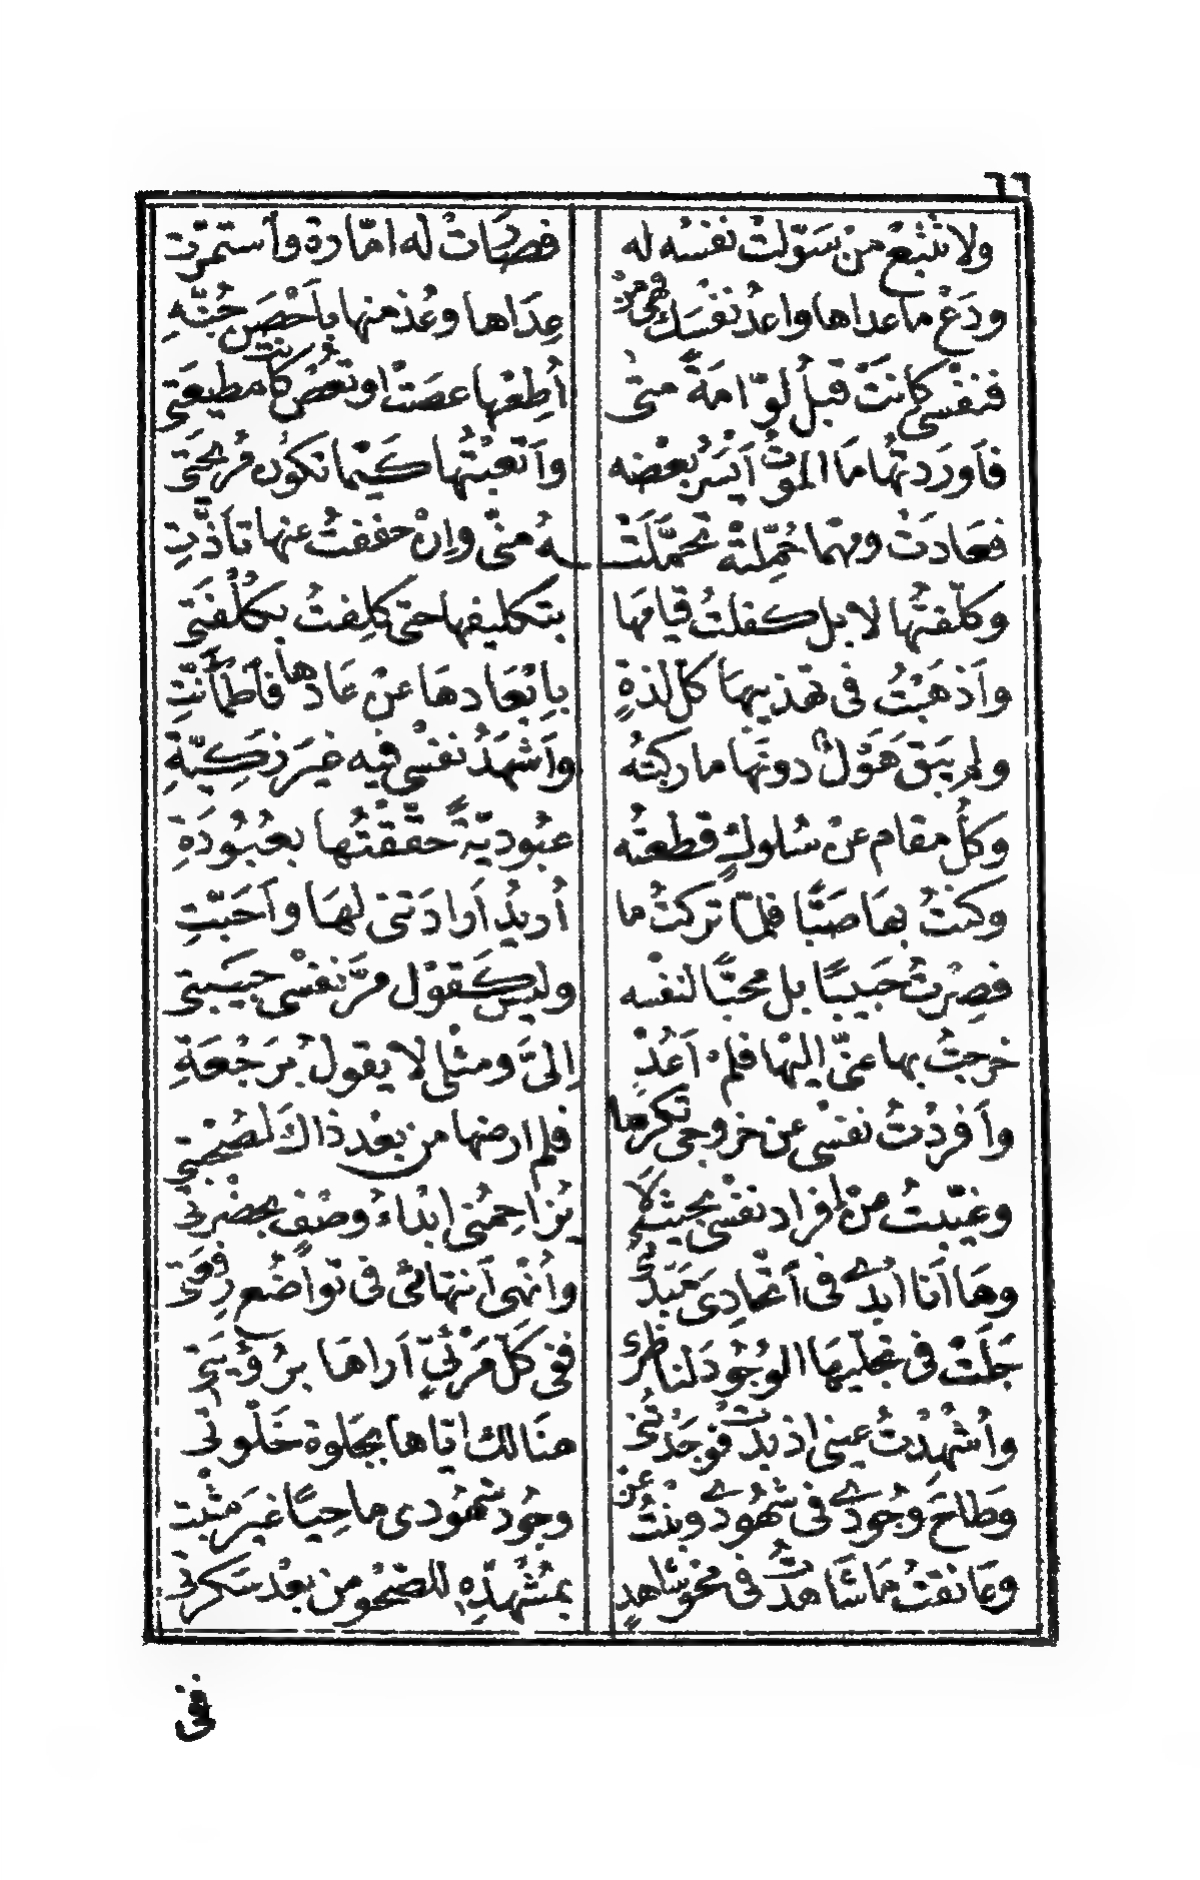 ٦٦
ولا تتبع من سوّلت نفسه له فصارت له امّارة وأستمرّت
ودع ما عداها واعد نفسك فهى من عداها وعذ منها بأحصن جنّة
فنفسى كانت قبل لوّامة متى أطعها عصت او تعص كانت مطيعتى
فأوردتها ما الموت أيسر بعضه وأتعبتها كيما تكون مريحتى
فعادت ومهما حمّلته تحمّلت ـه منّى وإن خففت عنها تأذّت
وكلّفتها لا بل كفلت قيامها بتكليفها حتى كلفت بكلفتى
وأذهبت فى تهذيبها كل لذة بإبعادها عن عادها فاطمأنّت
ولم يبق هول دونها ما ركبته وأشهد نفسى فيه غير زكيّة
وكل مقام عن سلوك قطعته عبوديّة حققتها بعبودة
وكنت بها صبّا فلمّا تركت ما أريد أرادتنى لها وأحبّت
فصرت حبيبا بل محبّا لنفسه وليس كقول مرّ نفسى حبيبتى
خرجت بها عنّى إليها فلم أعد إلىّ ومثلى لا يقول برجعة
وأفردت نفسى عن خروجى تكرما فلم ارضها من بعد ذاك لصحبتى
وغيّبت من إفراد نفسى بحيث لا يزاحمنى إبداء وصف بحضرتى
وها أنا ابدى فى أتحادى مبدئى وأنهى أنتهائى فى تواضع رفعتى
جلت فى تجليها الوجود لناظرى ففى كل مرئىّ أراها برؤيتى
وأشهدت عينى اذ بدت فوجدتنى هنالك ايّاها بجلوة خلوتى
وطاح وجودى فى شهودى وبنت عن وجود شهودى ماحيا غير مثبت
وعانقت ما شاهدت فى محو شاهدى بمشهده للصحو من بعد سكرتى
فى